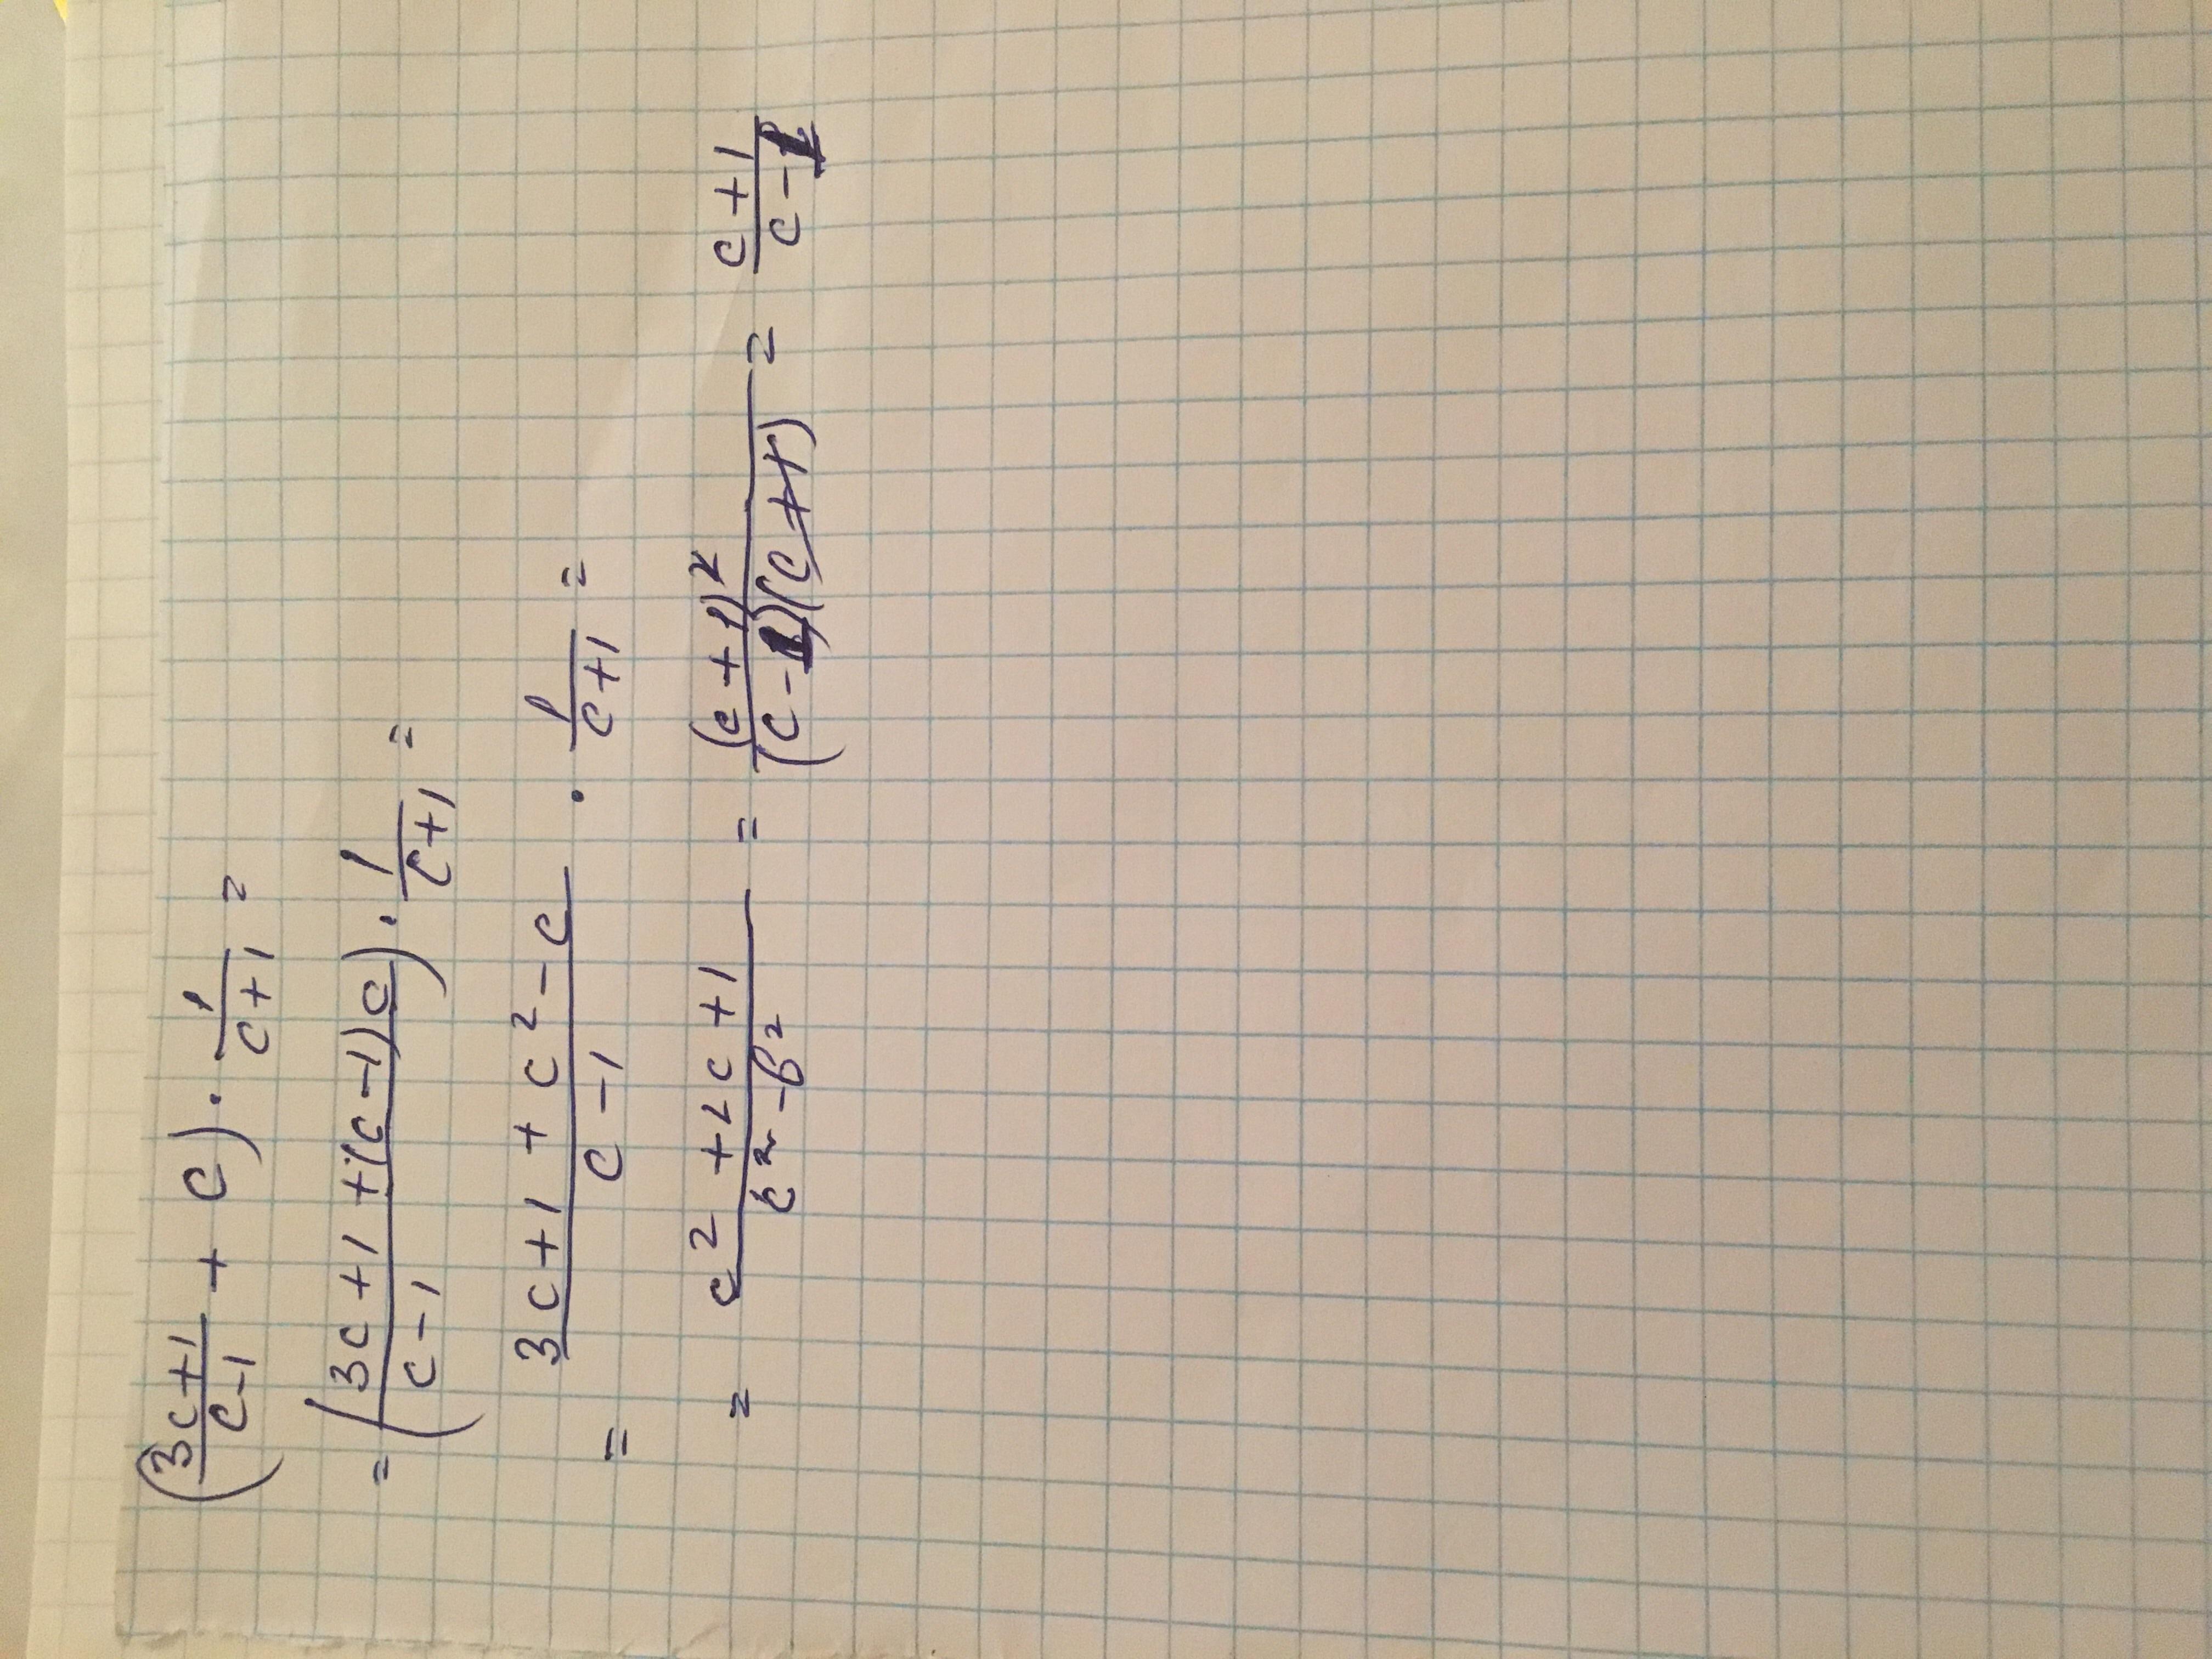 (3c+1/c-1 + c) · 1/c+1 =
= (3c+1+(c-1)c/c-1) · 1/c+1 =
= 3c+1+c²-c/c-1 · 1/c+1 =
= c²+2c+1/c²-b² = (c+1)²/(c-1)(c+1) = c+1/c-1